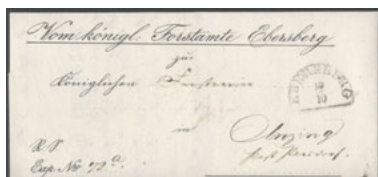 Vom königl. Forstamte Ebersberg
zur
Königlichen Forstrevier
EBERSBERG
2
10
in
Anzing
R. S.
Exp. No 72